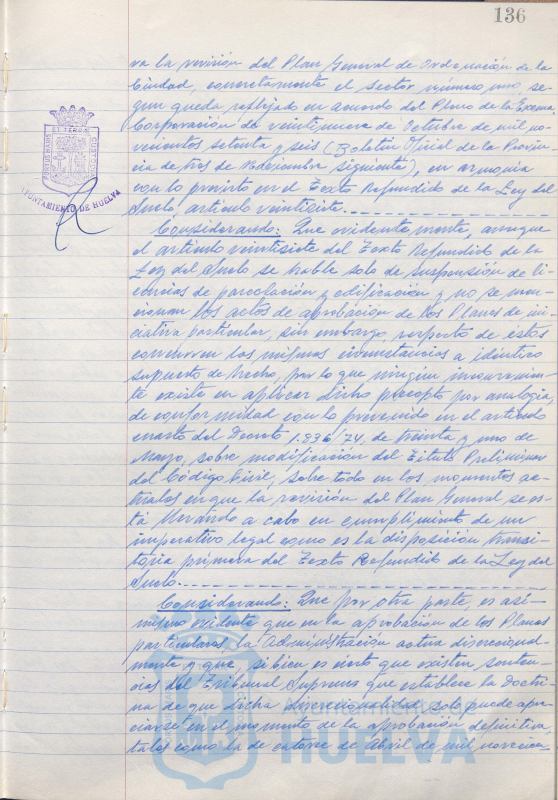 136
va la revisión del Plan General de Ordenación de la
Ciudad, concretamente el sector número uno, se-
gun queda reflejado en acuerdo del Pleno de la Excma
Corporación de veintinueve de Octubre de mil no-
vecientos setenta y seis (Boletín Oficial de la Provin-
cia de tres de Noviembre siguiente), en armonia
con lo previsto en el Texto Refundido de la Ley del
Suelo, artículo veintisiete.
AYUNTAMIENTO DE HUELVA
Considerando: Que evidentemente, aunque
el artículo veintisiete del Texto Refundido de la
Ley del Suelo se hable solo de suspensión de li-
cencias de parcelación y edificación y no se men-
cionan los actos de aprobación de los Planes de ini-
ciativa particular, sin embargo, respecto de éstos
concurren las mismas circunstancias a idéntico
supuesto de hecho, por lo que ningún inconvenien-
te existe en aplicar dicho precepto por analogia,
de conformidad con lo prevenido en el artículo
cuarto del Decreto 1.836/74, de treinta y uno de
Mayo, sobre modificación del Título Preliminar
del Código Civil, sobre todo en los momentos ac-
tuales en que la revisión del Plan General se es-
tá llevando a cabo en cumplimiento de un
imperativo legal como es la disposición transi-
toria primera del Texto Refundido de la Ley del
Suelo.
Considerando: Que por otra parte, es asi-
mismo evidente que en la aprobación de los Planes
particulares, la Administración actua discrecional-
mente y que, si bien es cierto que existen senten-
cias del Tribunal Supremo que establece la doctri-
na de que dicha discrecionalidad solo puede apre-
ciarse en el momento de la aprobación definitiva,
tales como la de catorce de Abril de mil novecien-
HUELVA